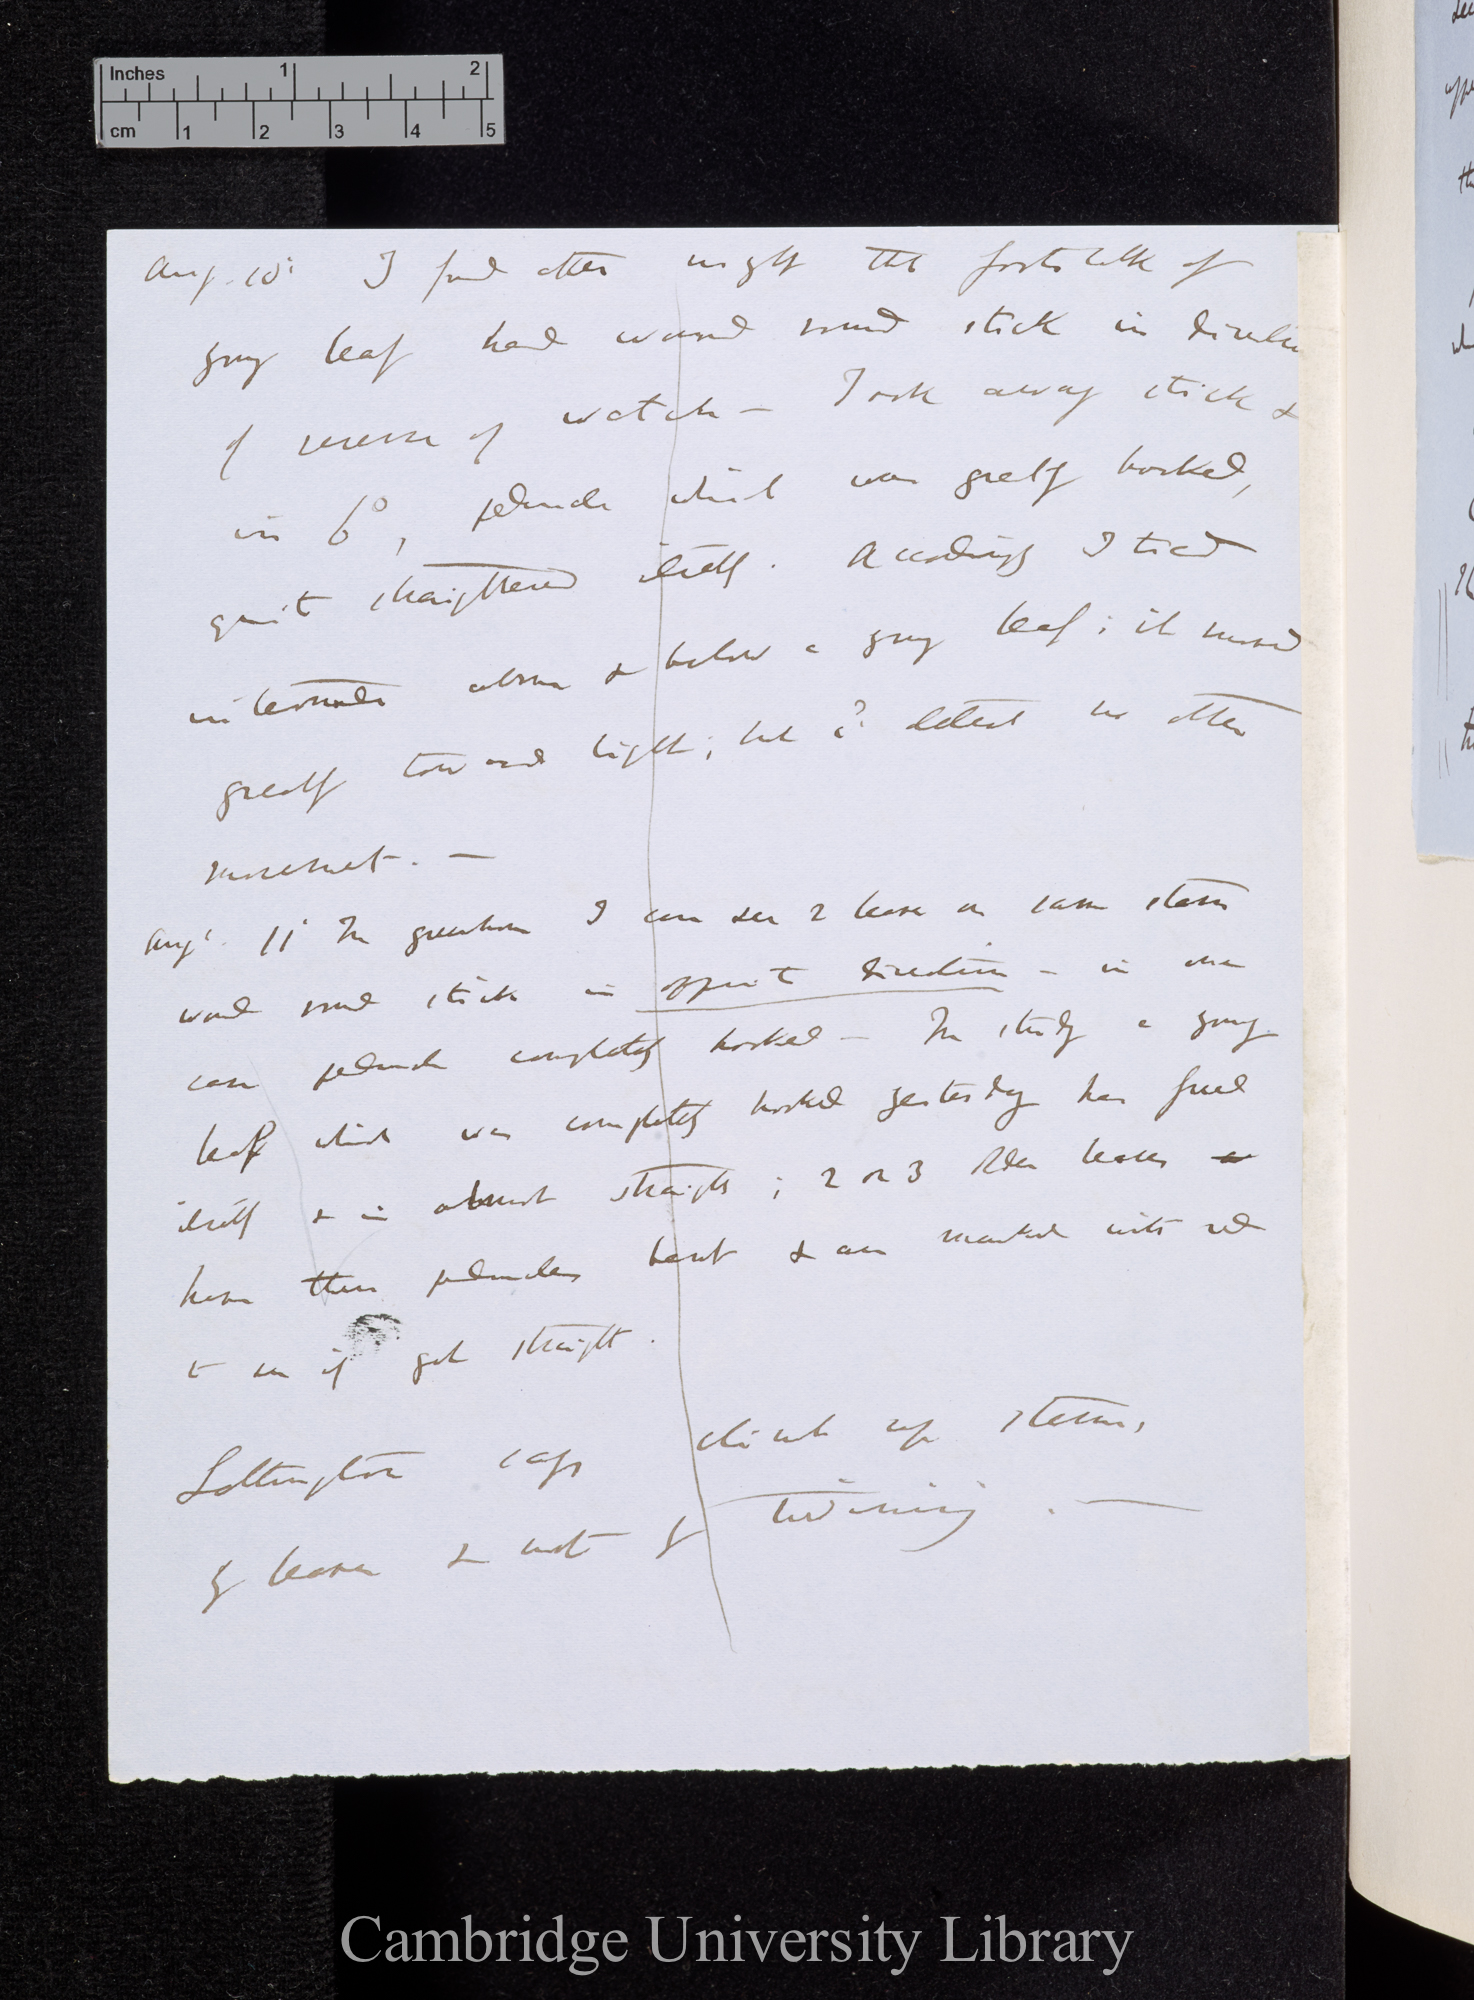 Inches 1 2
cm 1 2 3 4 5
Aug. 10' I find after night that footstalk of
young leaf had wound round stick in direction
of reverse of watch — I took away stick &
in 6°, peduncle which was greatly hooked,
quite straightened itself. Accordingly I tied
internode above & below a young leaf; it moved
greatly toward light; but cd detect no other
movement. —
Aug' 11' In greenhouse I can see 2 leaves on same stem
wound round stick in opposite direction — in one
case peduncle completely hooked — In study a young
leaf which was completely hooked yesterday has freed
itself & is almost straight; 2 or 3 older leaves
have their peduncles bent & are marked with red
to see if get straight.
Lottington says climb up stems,
by leaves & not by twining. —
Cambridge University Library